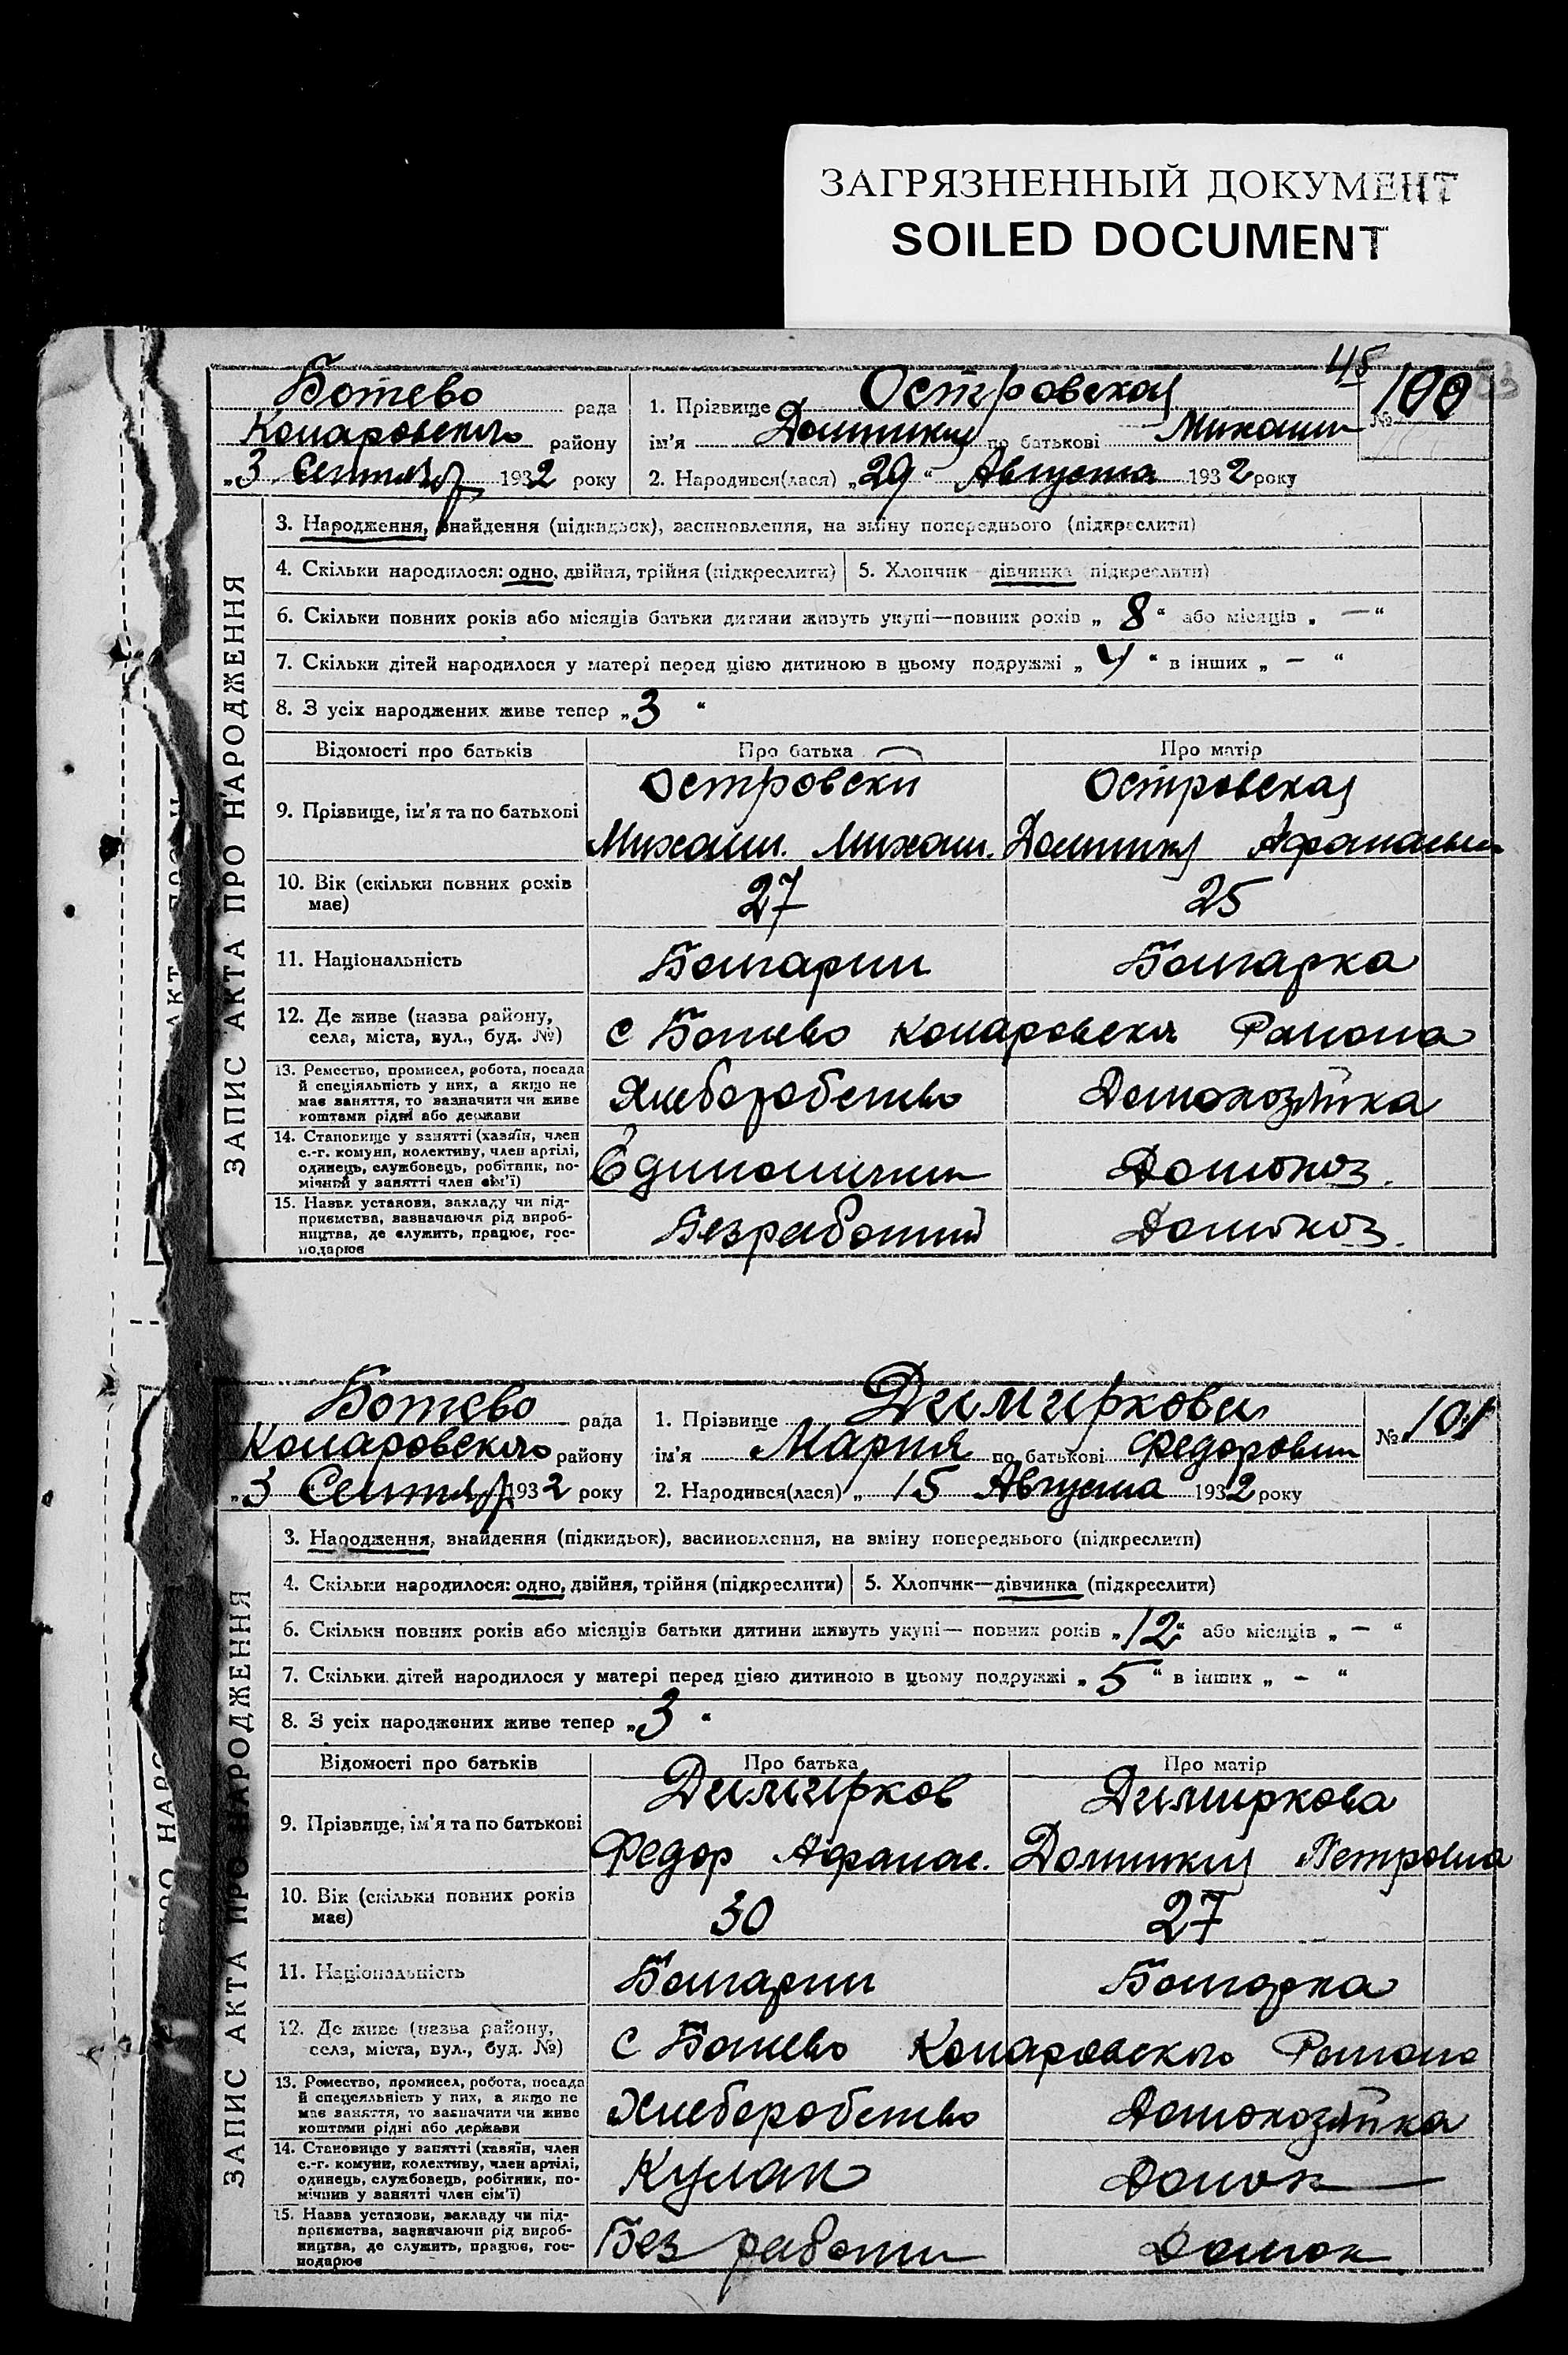 ЗАГРЯЗНЕННЫЙ ДОКУМЕНТ
SOILED DOCUMENT
45
Ботево рада
Коларовского району
„3 Сентябр 1932 року
1. Прізвище Островская
ім'я Домникия по батькові Михаил
2. Народився(лася) „29“ Августа 1932 року
№ 100
ЗАПИС АКТА ПРО НАРОДЖЕННЯ
3. Народження, знайдення (підкидьок), засиновлення, на зміну попереднього (підкреслити)
4. Скільки народилося: одно, двійня, трійня (підкреслити) 5. Хлопчик—дівчинка (підкреслити)
6. Скільки повних років або місяців батьки дитини живуть укупі—повних років „8“ або місяців „—“
7. Скільки дітей народилося у матері перед цією дитиною в цьому подружжі „4“ в інших „—“
8. З усіх народжених живе тепер „3“
Відомості про батьків Про батька Про матір
9. Прізвище, ім'я та по батькові
Островски Островская
Михаил. Михаил. Домникия Афанасьев
10. Вік (скільки повних років має) 27 25
11. Національність Болгарин Болгарка
12. Де живе (назва району, села, міста, вул., буд. №) с Ботево Коларовск Района
13. Ремество, промисел, робота, посада й спеціяльність у них, а якщо не має заняття, то зазначити чи живе коштами рідні або держави Хлеборобство Домохозяйка
14. Становище у занятті (хазяїн, член с.-г. комуни, колективу, член артілі, одинець, службовець, робітник, помічний у занятті член сім'ї) Единоличник Домохоз.
15. Назва установи, закладу чи підприємства, зазначаючи рід виробництва, де служить, працює, господарює Безработный Домохоз.
Ботево рада
Коларовского району
„3 Сентябр 1932 року
1. Прізвище Димиркова
ім'я Мария по батькові Федоровн
2. Народився(лася) „15 Августа 1932 року
№ 101
ЗАПИС АКТА ПРО НАРОДЖЕННЯ
3. Народження, знайдення (підкидьок), засиновлення, на зміну попереднього (підкреслити)
4. Скільки народилося: одно, двійня, трійня (підкреслити) 5. Хлопчик—дівчинка (підкреслити)
6. Скільки повних років або місяців батьки дитини живуть укупі— повних років „12“ або місяців „—“
7. Скільки дітей народилося у матері перед цією дитиною в цьому подружжі „5“ в інших „—“
8. З усіх народжених живе тепер „3“
Відомості про батьків Про батька Про матір
9. Прізвище, ім'я та по батькові
Димирков Димиркова
Федор Афанас. Домникия Петровна
10. Вік (скільки повних років має) 30 27
11. Національність Болгарин Болгарка
12. Де живе (назва району, села, міста, вул., буд. №) С Ботево Коларовского Района
13. Ремество, промисел, робота, посада й спецсяльність у них, а якщо не має заняття, то зазначити чи живе коштами рідні або держави Хлеборобство Домохозяйка
14. Становище у занятті (хазяїн, член с.-г. комуни, колективу, член артілі, одинець, службовець, робітник, помічнив у занятті член сім'ї) Кулак Домох
15. Назва установи, закладу чи підприємства, зазначаючи рід виробництва, де служить, працює, господарює Без работы Домох